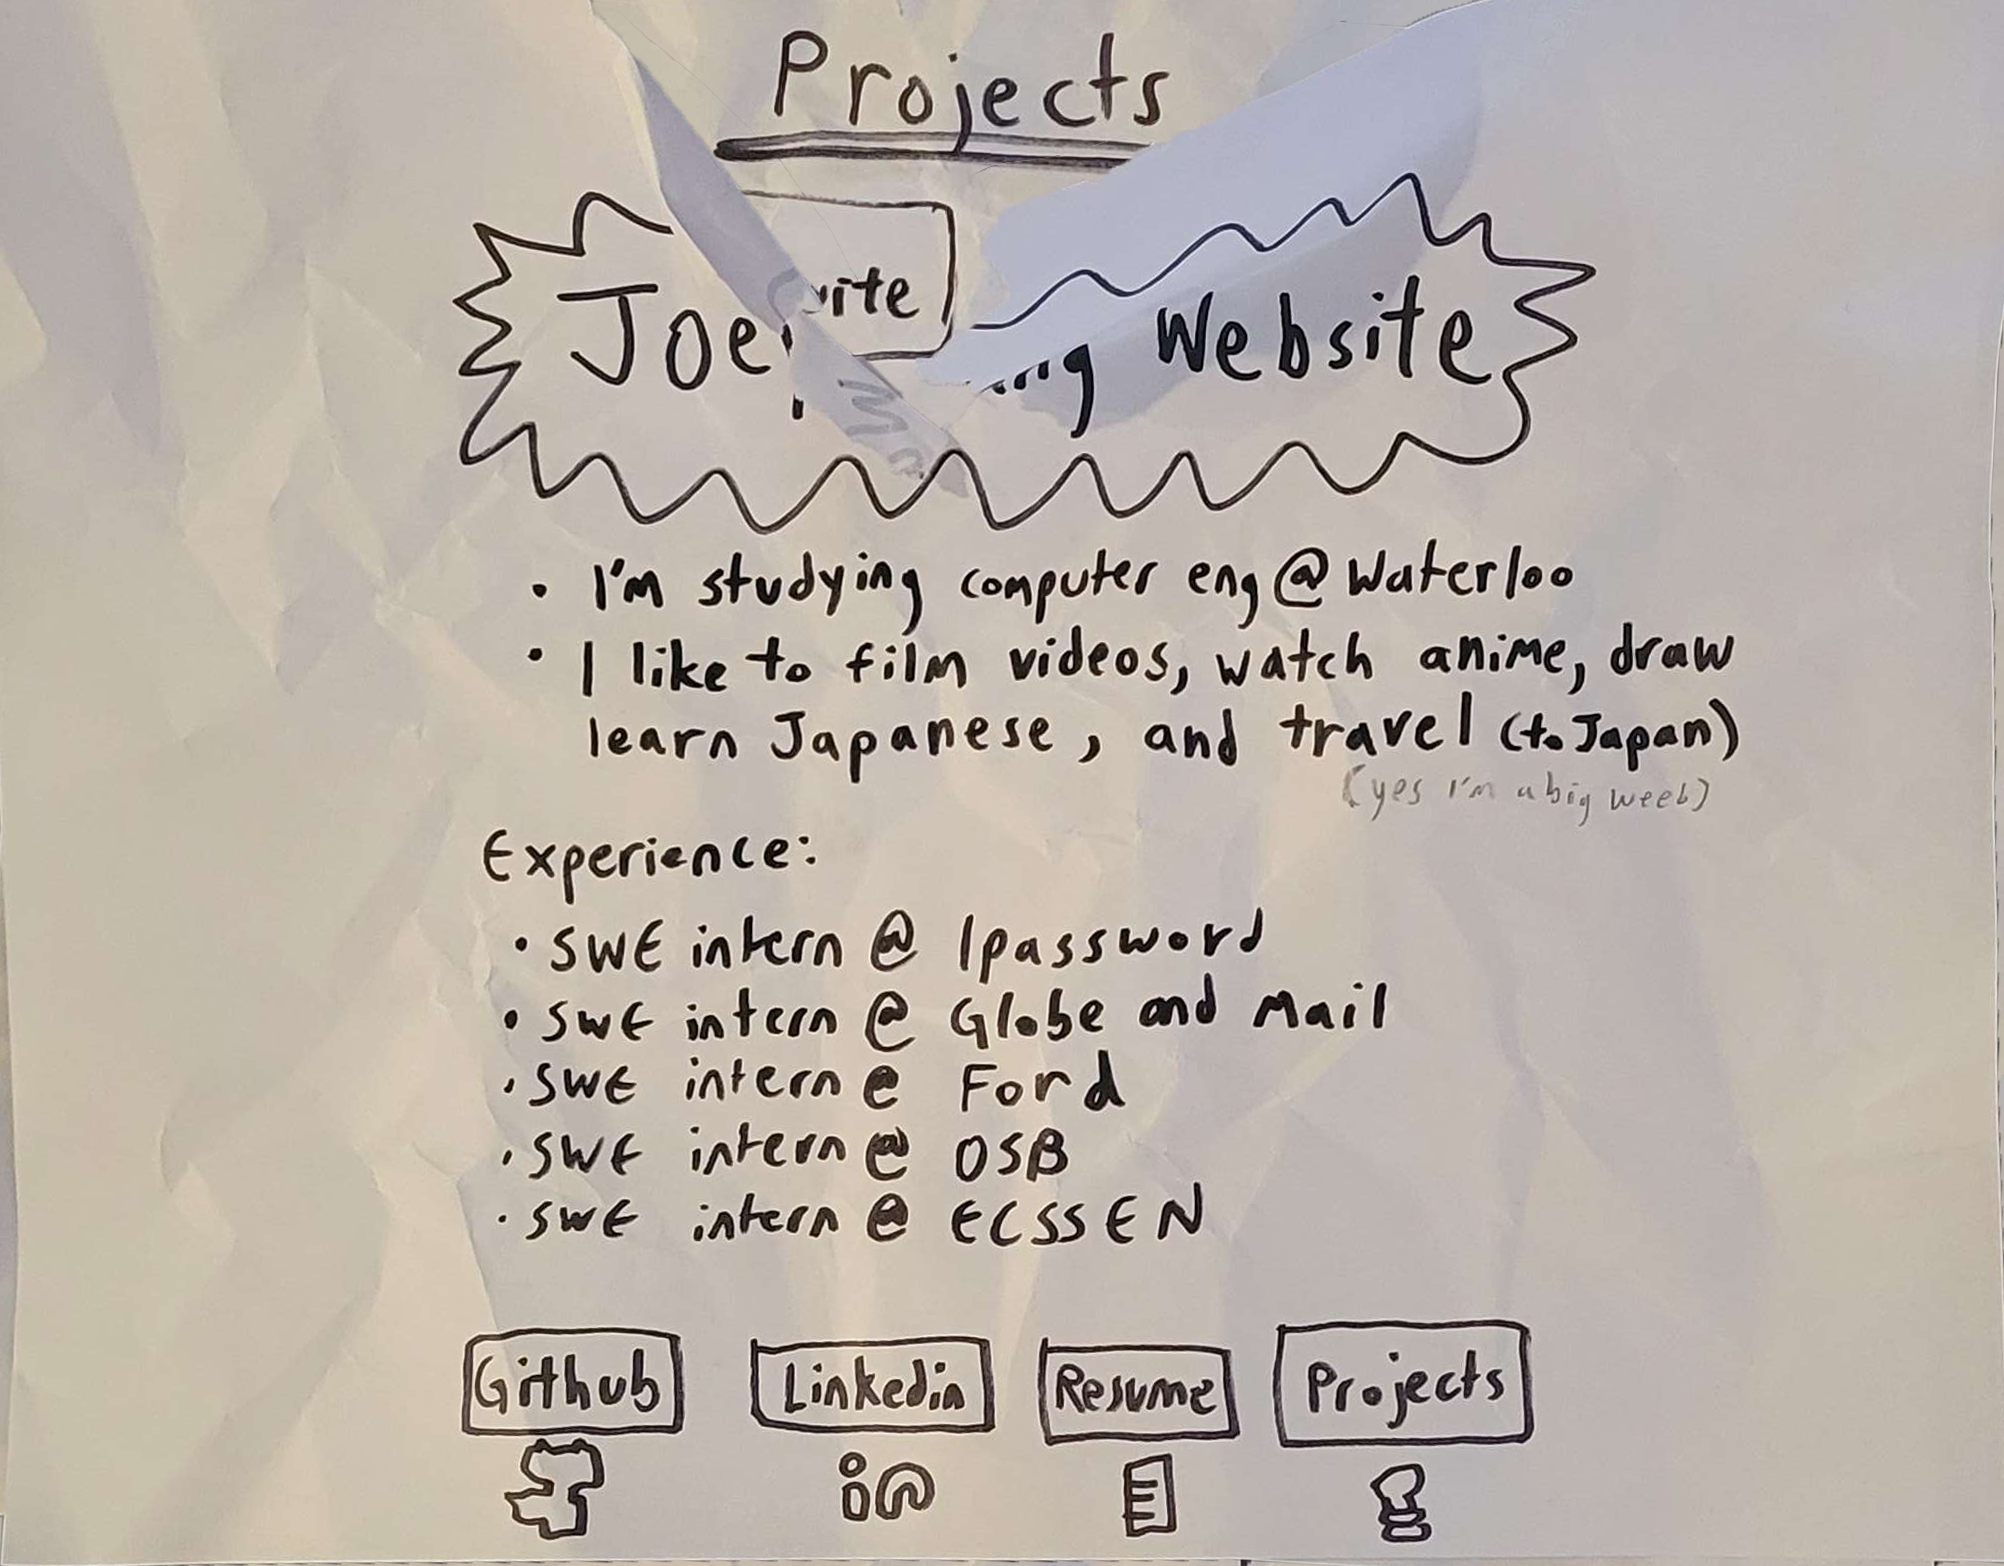 Projects
Joe
Website
• I'm studying computer eng @ Waterloo
• I like to film videos, watch anime, draw
learn Japanese, and travel (to Japan)
(yes I'm a big weeb)
Experience:
• SWE intern @ 1password
• SWE intern @ Globe and Mail
• SWE intern @ Ford
• SWE intern @ OSB
• SWE intern @ ECSSEN
Github Linkedin Resume Projects
in